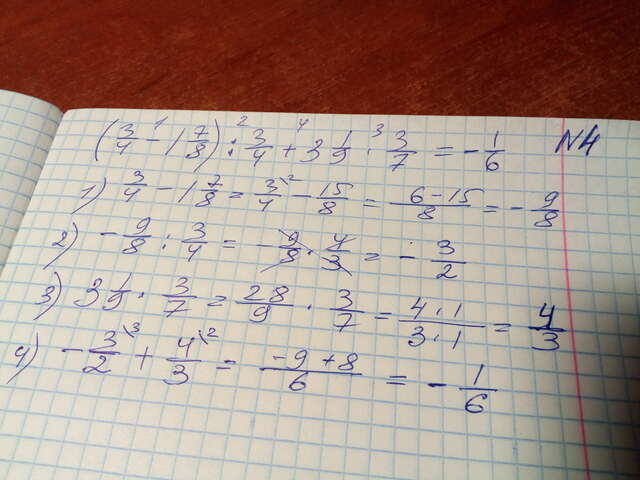 (3/4 - 1 7/8) : 3/4 + 3 1/9 · 3/7 = - 1/6 N4
1) 3/4 - 1 7/8 = 3/4 - 15/8 = 6-15/8 = - 9/8
2) - 9/8 : 3/4 = - 9/8 · 4/3 = - 3/2
3) 3 1/9 · 3/7 = 28/9 · 3/7 = 4·1/3·1 = 4/3
4) - 3/2 + 4/3 = -9+8/6 = - 1/6